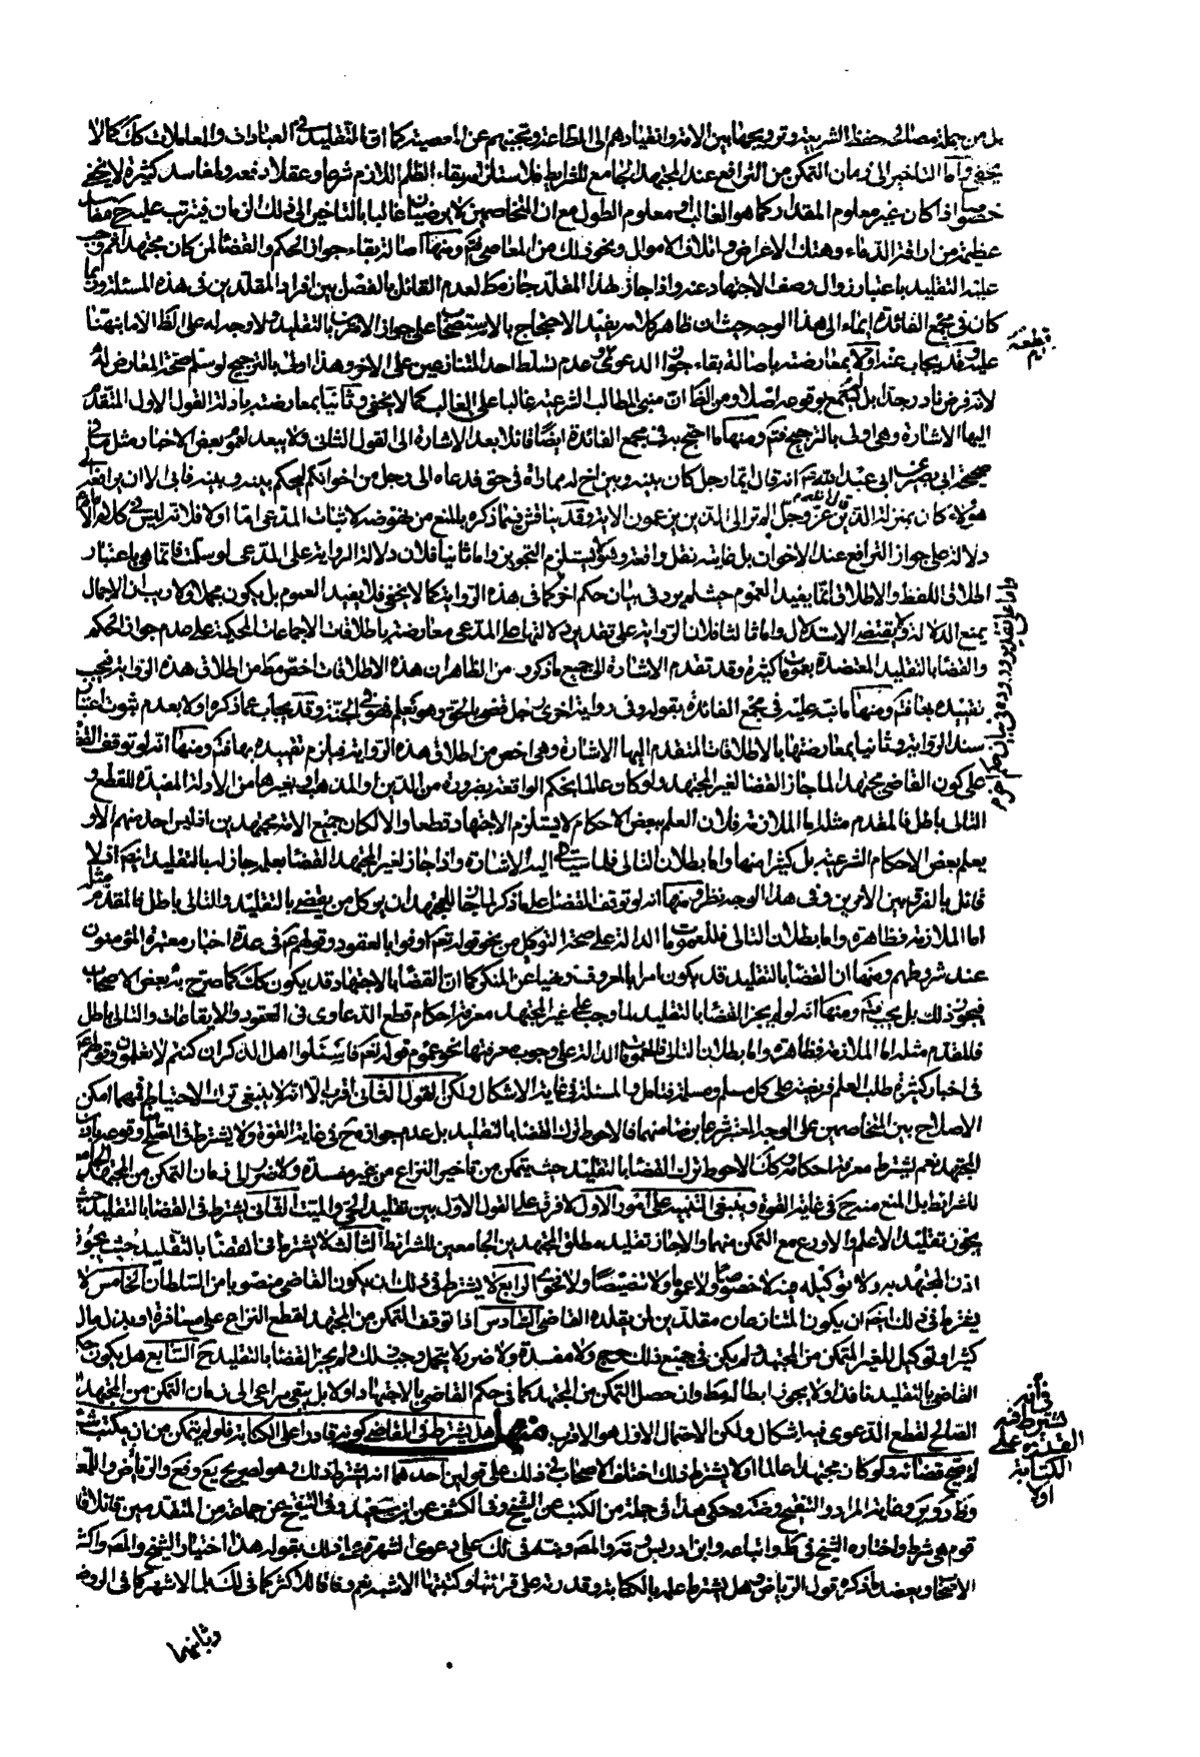 بل من جملة مصالحه حفظ الشريعة وترويجها بين الامة وانقيادهم الى الطاعة وتجنبهم عن المعصية كما ان التقليد في العبادات والمعاملات كك كما لا
يخفى واما التاخير الى زمان التمكن من الترافع عند المجتهد الجامع للشرايط فلاستلزامه بقاء الظلم اللازم شرعا وعقلا دفعه والمفاسد كثيرة لا يخفى
خصوصا اذا كان غير معلوم المقدار كما هو الغالب او معلوم الطول مع ان المتخاصمين لا يرضيان غالبا بالتاخير الى ذلك الزمان فيترتب عليه ح مفاسد
عظيمة من اراقة الدماء وهتك الاعراض واتلاف الاموال ونحو ذلك من المعاصي فتم ومنها اصالة بقاء جواز الحكم والقضاء لمن كان مجتهدا ثم وجب
عليه التقليد باعتبار زوال وصف الاجتهاد عنه واذا جاز لهذا المقلد جاز مط لعدم القائل بالفصل بين افراد المقلدين في هذه المسئلة وربما
كان في مجمع الفائدة ايماء الى هذا الوجه حيث ان ظاهر كلامه يفيد الاحتجاج بالاستصحاب على جواز الامرين بالتقليد ولا وجه له على الظ الا ما نبهنا
عليه وقد يجاب عنه اولا بمعارضته باصالة بقاء جواز الدعوى وعدم تسلط احد المتنازعين على الاخر وهذا اولى بالترجيح لو سلم صحة المعارض له
لانه فرض نادر جدا بل لم يسمع بوقوعه اصلا ومن الظ ان مبنى المطالب الشرعية غالبا على الغالب كما لا يخفى وثانيا بمعارضته بادلة القول الاول المتقدم
اليها الاشارة وهي اولى بالترجيح فتم ومنها ما احتج به في مجمع الفائدة ايضا قائلا بعد الاشارة الى القول الثاني ولا يبعد لعموم بعض الاخبار مثل ما في
صحيحة ابي بصير عن ابي عبد الله انه قال ايما رجل كان بينه وبين اخ له مماراة في حق فدعاه الى رجل من اخوانكم ليحكم بينه وبينه فابى الا ان يرافعه الى
هؤلاء كان بمنزلة الذين قال الله عز وجل الم تر الى الذين يزعمون الاية وقد يناقش فيما ذكره بالمنع من نهوضه لاثبات المدعى اما اولا فلانه ليس في كلام الامام
دلالة على جواز الترافع عند الاخوان بل غايته نقل واقعة وهو لا يستلزم التجويز واما ثانيا فلان دلالة الرواية على المدعى لو سلمت فانما هي باعتبار
اطلاق اللفظ والاطلاق انما يفيد العموم حيث لم يرد في بيان حكم اخر كما في هذه الرواية كما لا يخفى فلا يفيد العموم بل يكون مجملا ولا ريب ان الاجمال
يمنع الدلالة ويقتضي الاستدلال واما ثالثا فلان الرواية على تقدير دلالتها على المدعى معارضة باطلاقات الاجماعات المحكية على عدم جواز الحكم
والقضاء بالتقليد المعتضدة بعمومات كثيرة وقد تقدم الاشارة الى جميع ما ذكر ومن الظاهر ان هذه الاطلاقات اخص مط من اطلاق هذه الرواية فيجب
تقييده بها فتم ومنها ما نبه عليه في مجمع الفائدة بقوله وفي رواية اخرى رجل قضى بالحق وهو يعلم فهو في الجنة وقد يجاب عما ذكره اولا بعدم ثبوت اعتبار
سند الرواية وثانيا بمعارضتها بالاطلاقات المتقدم اليها الاشارة وهي اخص من اطلاق هذه الرواية فيلزم تقييده بها فتم ومنها انه لو توقف القضاء
على كون القاضي مجتهدا لما جاز القضاء لغير المجتهد ولو كان عالما بحكم الواقعة بضرورة من الدين او المذهب او بغيرها من الادلة المفيدة للقطع و
التالي باطل فالمقدم مثله اما الملازمة فلان العلم ببعض الاحكام لا يستلزم الاجتهاد قطعا والا لكان جميع الامة مجتهدين اذ ليس احد منهم الا و
يعلم بعض الاحكام الشرعية بل كثيرا منها واما بطلان التالي فلما سياتي اليه الاشارة واذا جاز لغير المجتهد القضاء بعلم جاز له بالتقليد فتم اذ لا
قائل بالفرق بين الامرين وفي هذا الوجه نظر ومنها انه لو توقف القضاء على ما ذكر لما جاز للمجتهد ان يوكل من يقضي بالتقليد والتالي باطل فالمقدم مثله
اما الملازمة فظاهرة واما بطلان التالي فللعمومات الدالة على صحة التوكيل من نحو قوله تعالى اوفوا بالعقود وقولهم ع في عدة اخبار معتبرة المؤمنون
عند شروطهم ومنها ان القضاء بالتقليد قد يكون امرا بالمعروف ونهيا عن المنكر كما ان القضاء بالاجتهاد قد يكون كك كما صرح به بعض الاصحاب
فيجوز ذلك بل يجب فتم ومنها انه لو لم يجز القضاء بالتقليد لما وجب على غير المجتهد معرفة احكام قطع الدعاوى في العقود والايقاعات والتالي باطل
فالمقدم مثله اما الملازمة فظاهرة واما بطلان التالي فللعمومات الدالة على وجوب معرفتها نحو عموم قوله تعالى فاسئلوا اهل الذكر ان كنتم لا تعلمون وقولهم ع
في اخبار كثيرة طلب العلم فريضة على كل مسلم ومسلمة فتامل والمسئلة في غاية الاشكال ولكن القول الثاني اقرب الا انه لا ينبغي ترك الاحتياط فمهما امكن
الاصلاح بين المتخاصمين على الوجه المعتبر شرعا برضا منهما فالاحوط ترك القضاء بالتقليد بل عدم جوازه ح في غاية القوة ولا يشترط في الصلح وقوعه بيان
المجتهد نعم يشترط معرفة احكامه وكك الاحوط ترك القضاء بالتقليد حيث يتمكن من تاخير النزاع من غير مفسدة ولا ضرر الى زمان التمكن من المجتهد الجامع
للشرائط بل المنع منه ح في غاية القوة وينبغي التنبيه على امور الاول لا فرق على القول الاول بين تقليد الحي والميت الثاني يشترط في القضاء بالتقليد حيث
يجوز تقليد الاعلم والاورع مع التمكن منهما والا جاز تقليد مطلق المجتهدين الجامعين للشرائط الثالث لا يشترط في القضاء بالتقليد حيث يجوز
اذن المجتهد به ولا توكيله فيه لا خصوصا ولا عموما ولا تنصيصا ولا فحوى الرابع لا يشترط في ذلك ان يكون القاضي منصوبا من السلطان الخامس لا
يشترط في ذلك ايضا ان يكون المتنازعان مقلدين لمن يقلده القاضي السادس اذا توقف التمكن من المجتهد لقطع النزاع على مسافرة او بذل مال
كثير او توكيل للغير المتمكن من المجتهد ولم يكن في جميع ذلك حرج ولا مفسدة ولا ضرر لا يتحمل وجب ذلك ولم يجز القضاء بالتقليد ح السابع هل يكون حكم
القاضي بالتقليد نافذا ولا يجوز ابطاله مط وان حصل التمكن من المجتهد كما في حكم القاضي بالاجتهاد او لا بل يبقى مراعى الى زمان التمكن من المجتهد
الصالح لقطع الدعوى فيه اشكال ولكن الاحتمال الاول هو الاقرب منهل هل يشترط في القاضي كونه قادرا على الكتابة فلو لم يتمكن من ان يكتب شيئا
لم يصح قضائه ولو كان مجتهدا عالما او لا يشترط ذلك اختلف الاصحاب في ذلك على قولين احدهما انه يشترط ذلك وهو لصريح يع وفع والرياض واللمعة
وظ د وير وغاية المراد والتنقيح وضه وحكي هذا في جملة من الكتب عن الشيخ وفي الكشف عن ابن سعيد وفي التنقيح عن جماعة من المتقدمين قائلا قال
قوم هي شرط واختاره الشيخ في ط واتباعه وابن ادريس وتبعه المصه ويدل في ذلك على دعوى الشهرة عليه ذلك بقوله هذا اختيار الشيخ والمصه واكثر
الاصحاب ويعضد ما ذكره قول الرياض وهل يشترط علمه بالكتابة وقدرته على قرائتها وكتبتها الاشبه نعم وفاقا للاكثر كما في لك بل الاشهر كما في الروضة
وثانيهما
قطعة
في انه يشترط فيه القدرة على الكتابة او لا